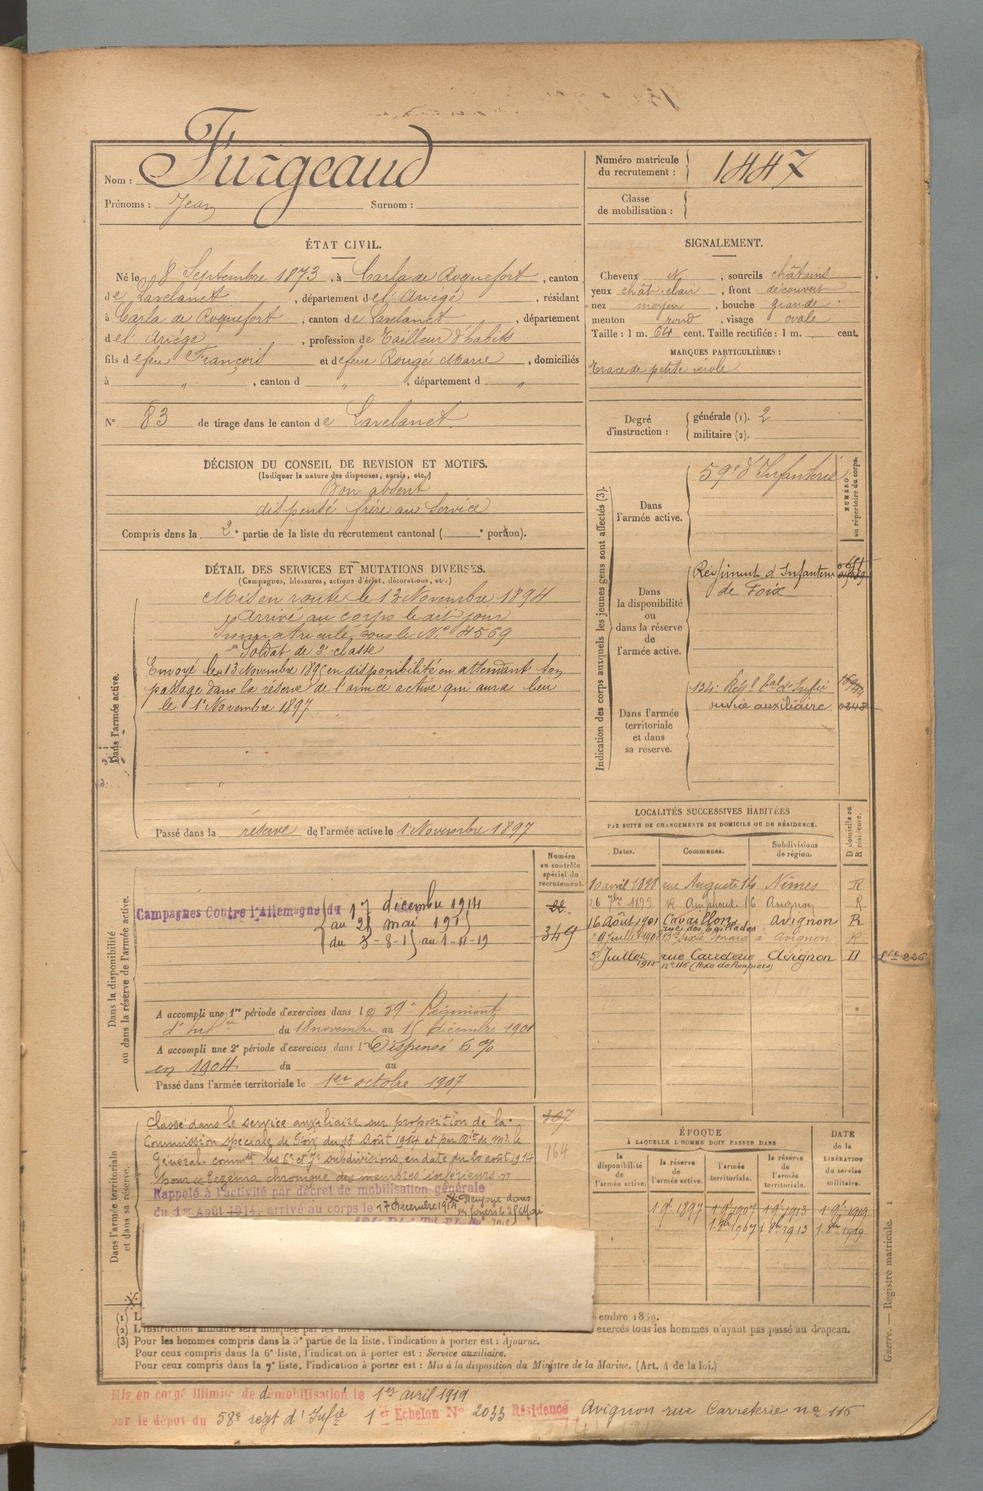 Nom : Furgeaud
Prénoms : Jean Surnom :
Numéro matricule du recrutement : 1447
Classe de mobilisation :
ÉTAT CIVIL.
Né le 8 Septembre 1873, à Carla de Roquefort, canton
de Lavelanet, département de l'Ariège, résidant
à Carla de Roquefort, canton de Lavelanet, département
de l'Ariège, profession de Tailleur d'habits
fils de feu François et de feue Rougé Marie, domiciliés
à " , canton d " , département d "
N° 83 de tirage dans le canton de Lavelanet
SIGNALEMENT.
Cheveux N, sourcils châtains
yeux chât. clair, front découvert
nez moyen, bouche grande
menton rond, visage ovale
Taille : 1 m. 64 cent. Taille rectifiée : 1 m. cent.
MARQUES PARTICULIÈRES :
Trace de petite vérole
Degré d'instruction : générale (1). 2
militaire (2).
DÉCISION DU CONSEIL DE REVISION ET MOTIFS.
(Indiquer la nature des dispenses, sursis, etc.)
Bon absent
dispensé frère au service
Compris dans la 2e partie de la liste du recrutement cantonal ( e portion).
DÉTAIL DES SERVICES ET MUTATIONS DIVERSES.
(Campagnes, blessures, actions d'éclat, décorations, etc.)
Dans l'armée active.
Mis en route le 13 Novembre 1894
Arrivé au corps le dit jour
Immatriculé sous le N° 4569
Soldat de 2e classe
Envoyé le 13 Novembre 1895 en disponibilité en attendant son
passage dans la réserve de l'armée active qui aura lieu
le 1er Novembre 1897
Passé dans la réserve de l'armée active le 1 Novembre 1897
Indication des corps auxquels les jeunes gens sont affectés (3).
NUMÉRO au répertoire du corps.
Dans l'armée active.
59e d'Infanterie
Dans la disponibilité ou dans la réserve de l'armée active.
Régiment d'Infanterie
de Foix
Dans l'armée territoriale et dans sa réserve.
134e Rég. t.al d'Infie
service auxiliaire
LOCALITÉS SUCCESSIVES HABITÉES
PAR SUITE DE CHANGEMENTS DE DOMICILE OU DE RÉSIDENCE.
Dates. Communes. Subdivisions de région. D domicile ou R résidence.
10 avril 1898 rue Auguste 14 Nîmes R
26 7bre 1899 Avignon R
16 Août 1901 Cavaillon Avignon R
9 juillet 190 Avignon R
5 Juillet 1911 rue Carreterie Avignon D
N° 116 (Poste de Pompiers)
Dans la disponibilité ou dans la réserve de l'armée active.
Numéro au contrôle spécial du recrutement.
349
Campagnes Contre l'Allemagne du 17 décembre 1914
au 28 mai 191
du 3-8-1 au 1-11-19
A accompli une 1re période d'exercices dans le 59e Régiment
d'Infie du 18 novembre au 15 décembre 1901
A accompli une 2e période d'exercices dans l Dispensé 6 %
en 1904 du au
Passé dans l'armée territoriale le 1er octobre 1907
Dans l'armée territoriale et dans sa réserve.
164
Classé dans le service auxiliaire sur proposition de la
Commission spéciale de Foix du 18 Août 1914 et par don de Mr le
Général commdt les 6e et 7e subdivisions, en date du 20 août 1914
pour Eczéma chronique des membres inférieurs
Rappelé à l'activité par décret de mobilisation générale
du 1er Août 1914, arrivé au corps le 17 décembre 1914 Renvoyé dans
ses foyers le 28 Mai
ÉPOQUE
À LAQUELLE L'HOMME DOIT PASSER DANS
la disponibilité de l'armée active. la réserve de l'armée active. l'armée territoriale. la réserve de l'armée territoriale. DATE de la LIBÉRATION du service militaire.
1 9bre 1897 1 9bre 1907 1 9bre 1913 1 9bre 1919
1 8bre 1907 1 8bre 1913 1 8bre 1919
(1) L
(2) L'instruction militaire sera indiquée par les mots
exercés tous les hommes n'ayant pas passé au drapeau.
(3) Pour les hommes compris dans la 5e partie de la liste, l'indication à porter est : Ajourné.
Pour ceux compris dans la 6e liste, l'indication à porter est : Service auxiliaire.
Pour ceux compris dans la 7e liste, l'indication à porter est : Mis à la disposition du Ministre de la Marine. (Art. 4 de la loi.)
Guerre. — Registre matricule. 1
Mis en congé illimité de démobilisation le 1er avril 1919
par le dépôt du 58e régt d'Infie 1er Echelon N° 2033 Résidence Avignon rue Carreterie n° 116